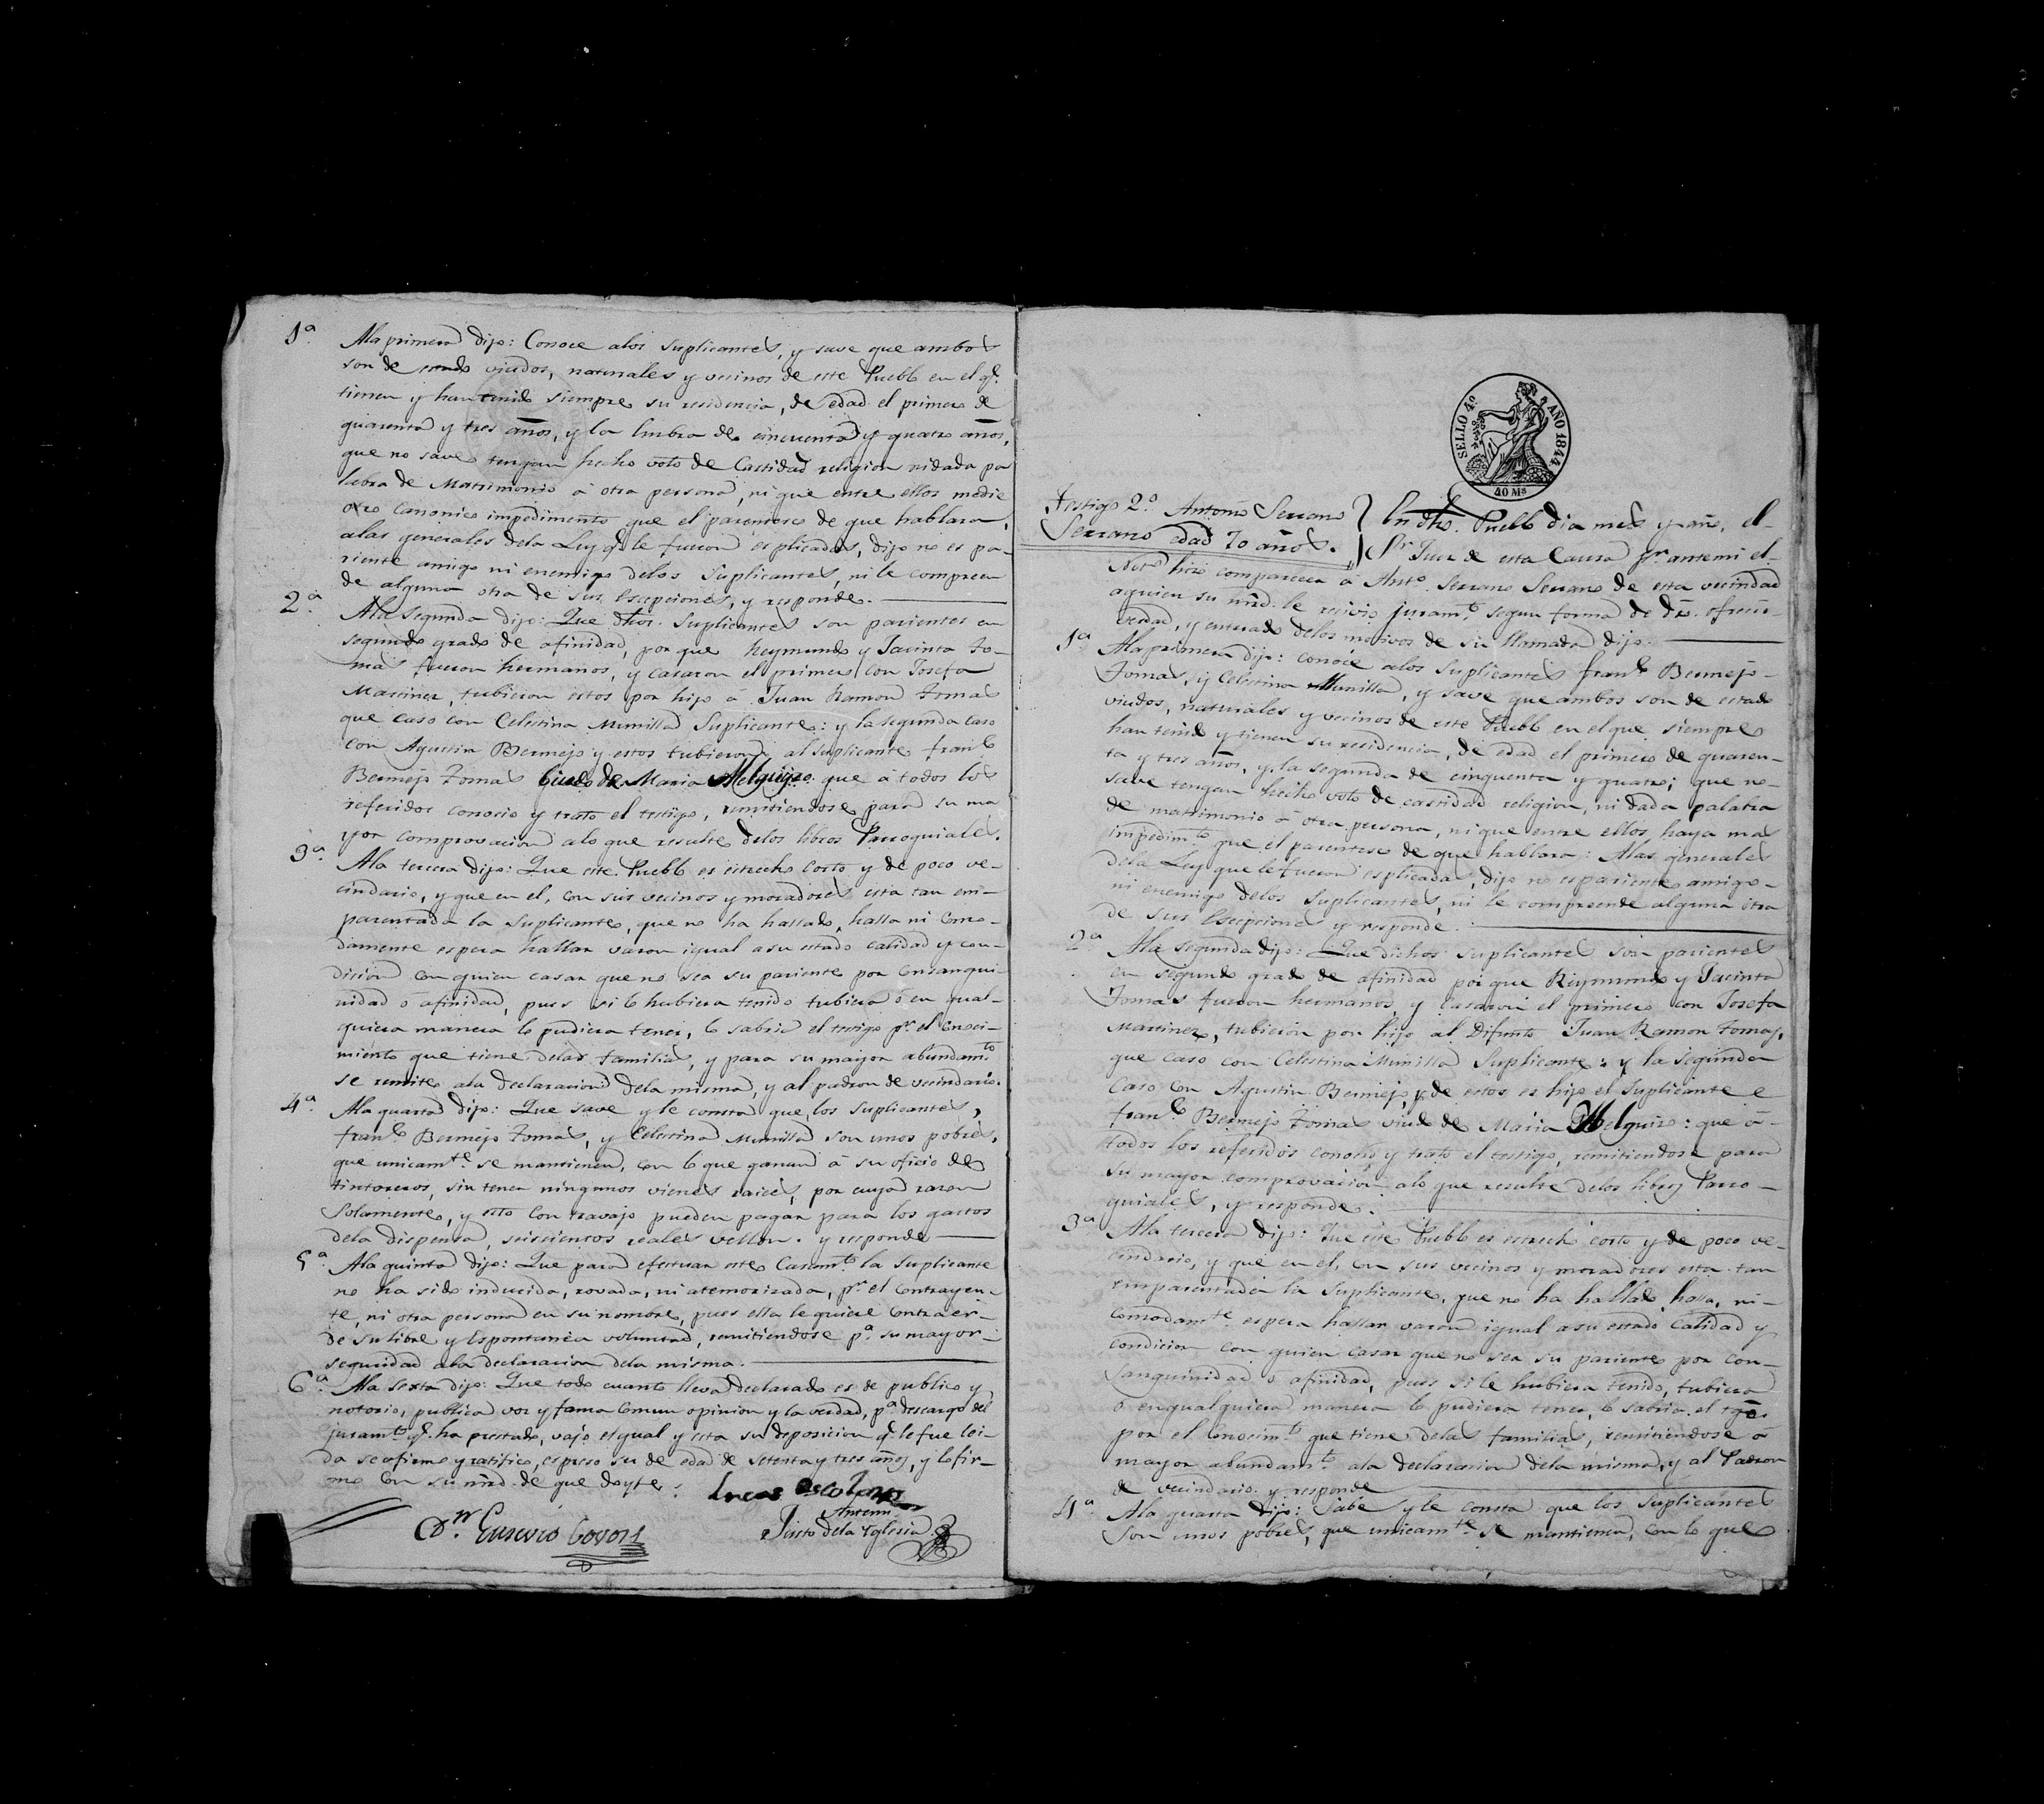 1ª Ala primera dijo: Conoce alos Suplicantes, y save que ambos
son de estado viudos, naturales y vecinos de este Pueblo en el q.
tienen y han tenido siempre su residencia, de edad el primero de
quarenta y tres años, y la hembra de cincuenta y quatro años,
que no save tengan hecho voto de Castidad religion ni dada pa
labra de Matrimonio á otra persona, ni que entre ellos medie
otro Canonico impedimento que el parentesco de que hablara,
alas generales dela Ley q. le fueron esplicadas, dijo no es pa-
riente amigo ni enemigo delos Suplicantes, ni le compreen
de alguna otra de sus Escepciones, y responde.
2ª Ala Segunda dijo: Que dhos. Suplicantes son parientes en
segundo grado de afinidad, por que Reymundo y Jacinta To-
mas fueron hermanos, y casaron el primero con Josefa
Martinez, tubieron estos por hijo á Juan Ramon Tomas
que caso con Celestina Munilla Suplicante: y la segunda caso
con Agustin Bermejo y estos tubieron al suplicante Franco
Bermejo Tomas biudo de Maria Melguizo. que á todos los
referidos conocio y trato el testigo, remitiendose para su ma
yor comprovacion alo que resulte delos libros Parroquiales.
3ª Ala tercera dijo: Que este Pueblo es estrecho corto y de poco ve-
cindario, y que en el, con sus vecinos y moradores esta tan em-
parentada la Suplicante, que no ha hallado, halla ni Como-
damente espera hallar varon igual asu estado calidad y con-
dicion con quien casar que no sea su pariente por Consangui-
nidad ó afinidad, pues si lo hubiera tenido tubiera ó en qual-
quiera manera lo pudiera tener, lo sabria el testigo pr. el Conoci-
miento que tiene delas familias, y para su mayor abundamto
se remite ala declaracion dela misma, y al padron de vecindario.
4ª Ala quarta dijo: Que save y le consta que los Suplicantes,
Franco Bermejo Tomas, y Celestina Munilla son unos pobres,
que unicamte. se mantienen, con lo que ganan á su oficio de
tintoreros, sin tener ningunos vienes raices, por cuya razon
Solamente, y esto con travajo pueden pagar para los gastos
dela dispensa, seiscientos reales vellon. y responde
5ª Ala quinta dijo: Que para efectuar este Casamto. la Suplicante
no ha sido inducida, rovada, ni atemorizada, pr. el Contrayen-
te, ni otra persona en su nombre, pues ella le quiere Contraer-
de su libre y Espontanea voluntad, remitiendose pª. su mayor-
seguridad ala declaracion dela misma.
6ª Ala Sexta dijo: Que todo cuanto lleva declarado es de publico y
notorio, publica voz y fama Comun opinion y la verdad, pª. descargo del
juramto. q. ha prestado, vajo el qual y esta su deposicion q. le fue lei-
da se afirmo y ratifico, espreso ser de edad de setenta y tres años, y lo fir-
mo con su mrd. de que doy fe:
Lucas Escolano
Antemi
Justo dela Yglesia
Dn. Eusevio Covos
SELLO 4º AÑO 1844
40 Ms
Testigo 2.º Antonio Serrano
Serrano edad 70 años.
En dho. Pueblo dia mes y año, el-
Sr. Juez de esta Causa pr. antemi el
Noto. hizo comparecer á Anto. Serrano Serrano de esta vecindad
aquien su mrd. le recivio juramto. segun forma de dro. ofrecio
verdad, y enterado delos motivos de su llamada dijo.
1ª Ala primera dijo: conoce alos Suplicantes Franco Bermejo-
Tomas, y Celestina Munilla, y save que ambos son de estado
viudos, naturales y vecinos de este Pueblo en el que siempre
han tenido y tienen su residencia, de edad el primero de quaren-
ta y tres años, y la segunda de cinquenta y quatro; que no-
save tengan hecho voto de castidad religion, ni dada palabra
de matrimonio á otra persona, ni que entre ellos haya mas
impedimto. que el parentesco de que hablara: Alas generales
dela Ley que le fueron esplicadas, dijo no es pariente amigo-
ni enemigo delos Suplicantes, ni le compreende alguna otra
de sus Escepciones y responde.
2ª Ala Segunda dijo: Que dichos suplicantes son parientes
en segundo grado de afinidad por que Reymundo y Jacinta
Tomas fueron hermanos, y casaron el primero con Josefa
Martinez, tubieron por hijo al Difunto Juan Ramon Tomas,
que caso con Celestina Munilla Suplicante: y la segunda
Caso con Agustin Bermejo, y de estos es hijo el Suplicante
Franco Bermejo Tomas viudo de Maria Melguizo: que á-
todos los referidos conocio y trato el testigo, remitiendose para
su mayor comprovacion alo que resulte delos libros Parro-
quiales, y responde.
3ª Ala tercera dijo: Que este Pueblo es estrecho corto y de poco ve-
cindario, y que en el, con sus vecinos y moradores esta tan
emparentada la Suplicante, que no ha hallado, halla, ni-
comodamte. espera hallar varon igual asu estado Calidad y
condicion con quien casar que no sea su pariente por con-
sanguinidad ó afinidad, pues si le hubiera tenido, tubiera
ó en qualquiera manera lo pudiera tener, lo sabria el tgo.
por el Conocimto. que tiene delas familias, remitiendose á
mayor abundamto. ala declaracion dela misma, y al Padron
de vecindario y responde
4ª Ala quarta dijo: Sabe y le consta que los Suplicantes
son unos pobres, que unicamte. se mantienen, con lo que